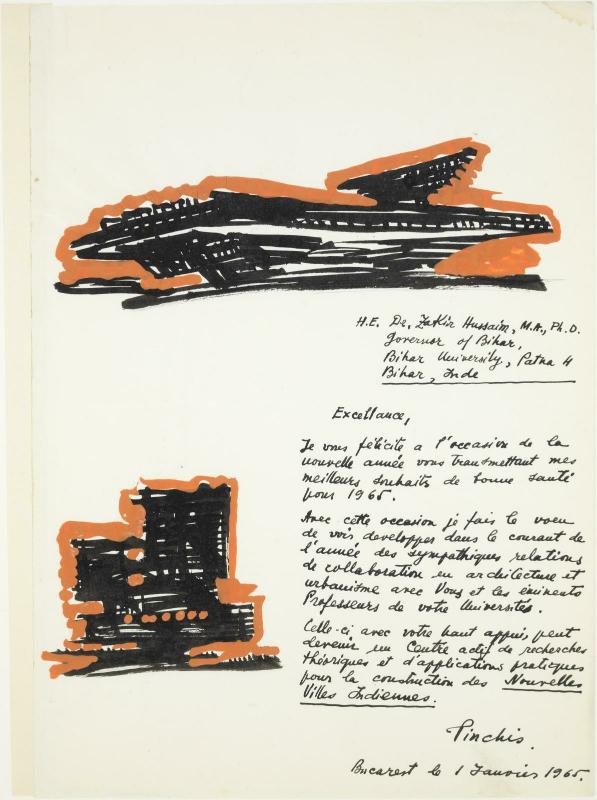 H.E. De, Zakir Hussaim, M.A., Ph.D.
Governor of Bihar,
Bihar University, Patna 4
Bihar, Inde
Excellance,
Je vous félicite a l'occasion de la
nouvelle année vous transmettant mes
meilleurs souhaits de bonne santé
pour 1965.
Avec cette occasion je fais le voeu
de voir developper dans le courant de
l'année des sympathiques relations
de collaboration en architecture et
urbanisme avec Vous et les éminents
Professeurs de votre Universités.
Celle-ci avec votre haut appui, peut
devenir un Centre actif de recherches
théoriques et d'applications pratiques
pour la construction des Nouvelles
Villes Indiennes.
Pinchis.
Bucarest le 1 Janvier 1965.